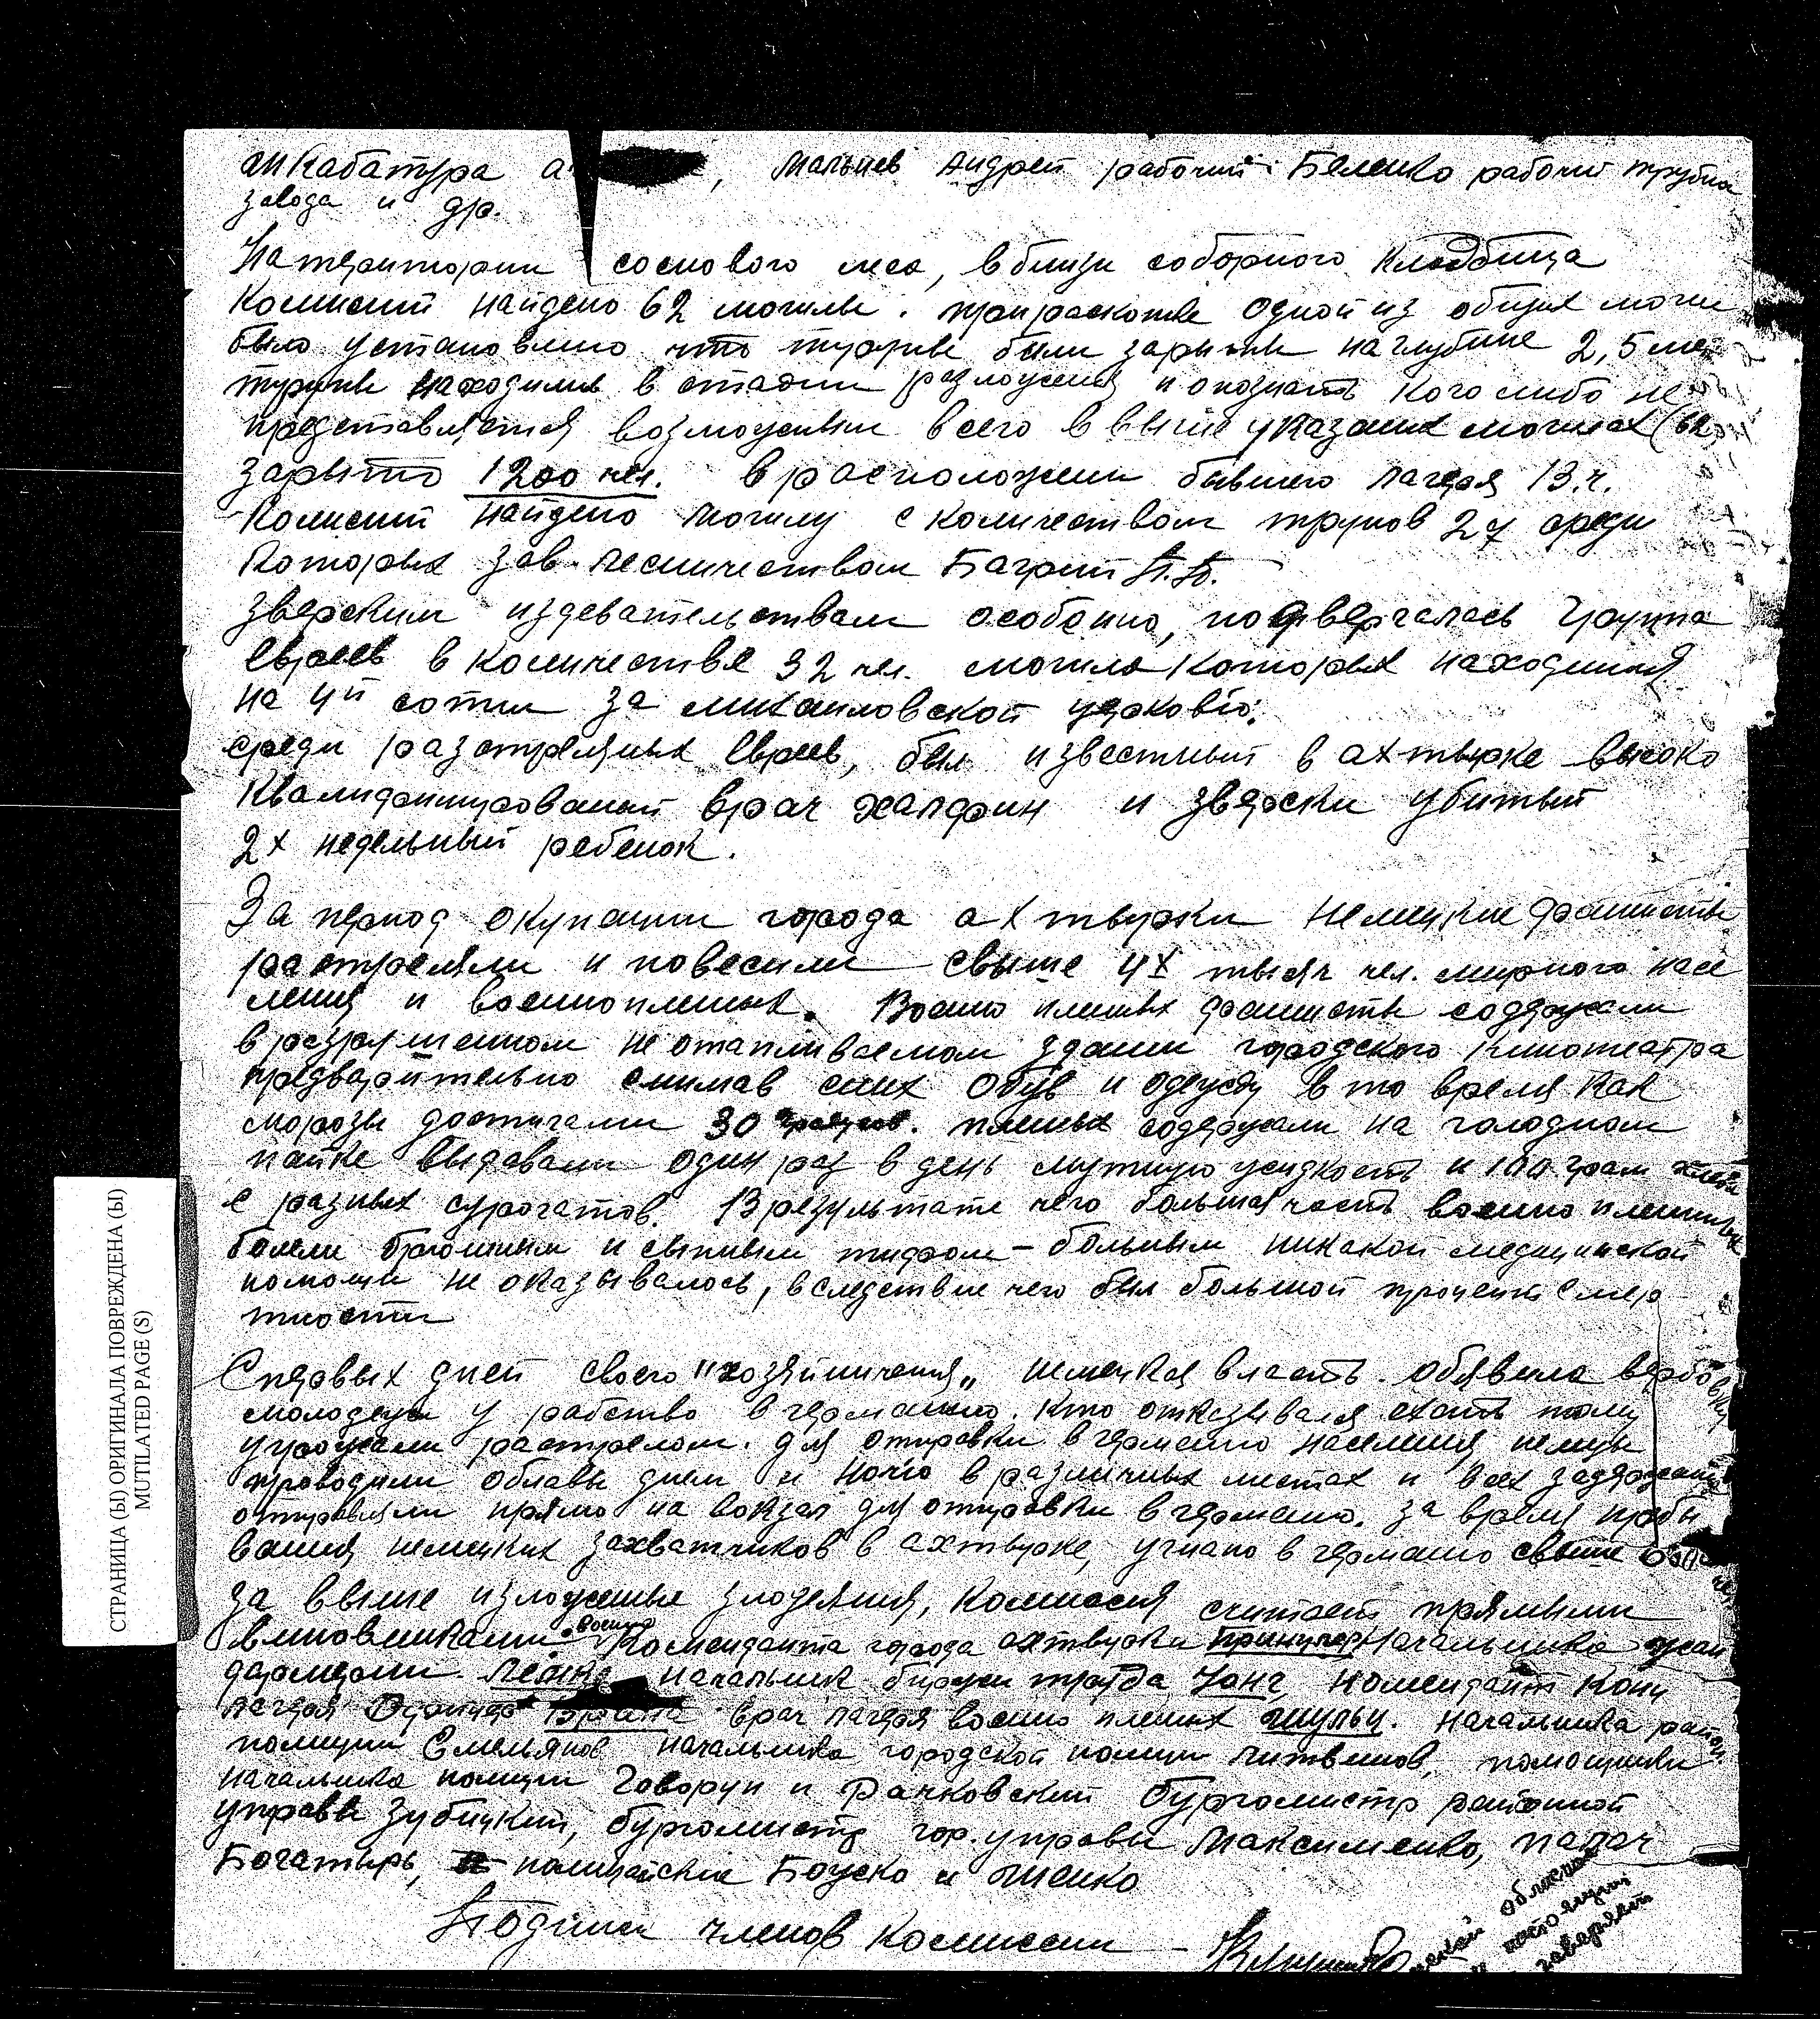 Мальцев Андрей рабочий Беленко рабочий трубна
завода и др.
На территории соснового леса, вблизи соборного Кладбища
Комисией найдено 62 могилы. при раскопке одной из общих моги
было установлено что трупы были зарыты на глубине 2,5 ме
трупы находились в стадии разложения и опознать кого либо не
представляется возможным всего в выше указаных могилах (62
зарыто 1200 чел. в расположении бывшего лагеря В.ч.
Комисией найдено могилу с количеством трупов 27 среди
которых зав. лесничеством Багрий П.П.
Зверским издевательствам особенно, подвергалась группа
Евреев в количестве 32 чел. могила которых находится
на 4й сотни за михаиловской церковю.
среди разстреляных Евреев, был известный в ахтырке высоко
Квалифицированый врач халфин и зверски убитый
2х недельный ребенок.
За период окупации города ахтырки немецкие фашисты
растреляли и повесили свыше 4х тысяч чел. мирного насе
ления и военнопленых. Военно пленых фашисты содержали
в разрушенном не отапливаемом здании городского Кинотеатра
предварительно снимав с них обув и одежду в то время как
морозы достигали 30 градусов. пленых содержали на голодном
пайке выдавали один раз в день мутную жидкость и 100 грам хлеба
с разных сурогатов. В результате чего большая часть военно пленных
болели брюшным и сыпным тифом - больным никакой медицинской
помощи не оказывалось, вследствие чего был большой процент смер
тности
С первых дней своего "хозяйничения„ немецкая власть обявила вербовку
молодежи у рабство в германию. Кто отказывался ехать тому
угрожали растрелом. для отправки в германию населения немцы
проводили облавы днем и ночю в различных местах и всех задержаных
отправляли прямо на вокзал для отправки в германию. за время пребы
вания немецких захватчиков в ахтырке, угнано в германию свыше
за выше изложеные злодеяния, Комиссия считает прямыми
виновниками военно Коменданта города ахтырки начальника жан
дармерии начальник биржи труда Юнг, комендант конц
лагеря врач лагеря военно пленых шульц. начальника район
полиции Емельянов начальника городской полиции Литвинов, помощники
начальника полиции Говорун и Рачковский бургомистр районной
управы Зубицкий, бургомистр гор. управы Максименко, палач
Богатырь, полицайские Боуско и
Подписи членов Комиссии -
СТРАНИЦА (Ы) ОРИГИНАЛА ПОВРЕЖДЕНА (Ы)
MUTILATED PAGE (S)